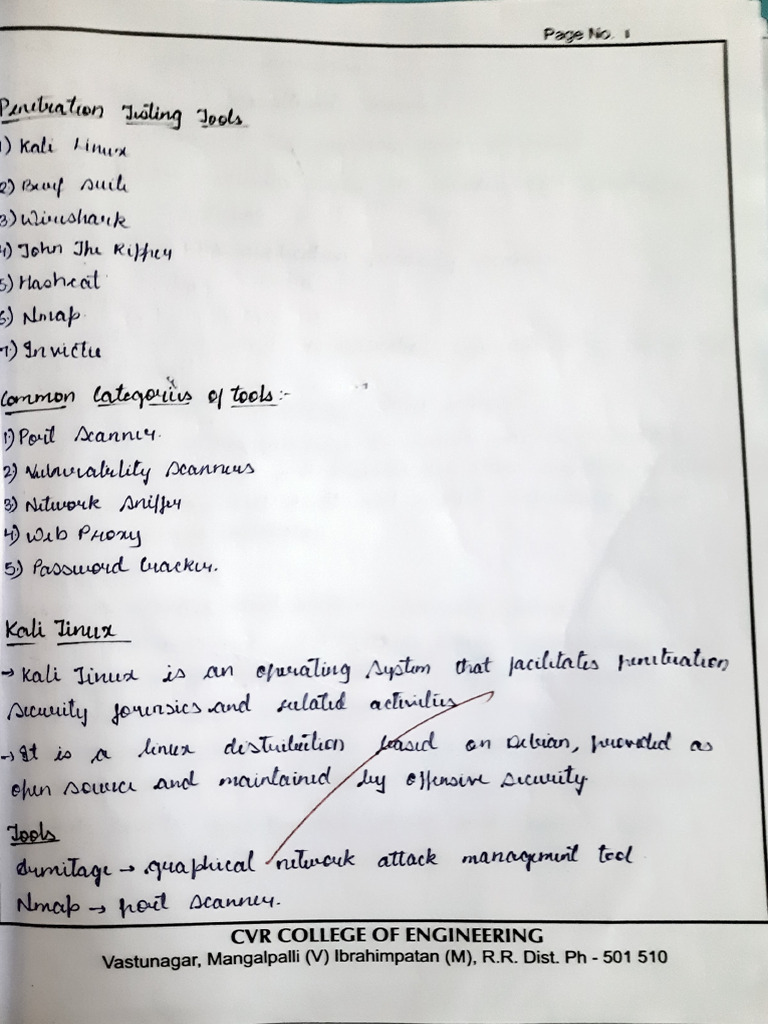 Page No. 1
Penetration Testing Tools
1) Kali Linux
2) Burp Suite
3) Wireshark
4) John The Ripper
5) Hashcat
6) Nmap
7) Invicti
Common Categories of tools:-
1) Port Scanner.
2) Vulnerability Scanners
3) Network Sniffer
4) Web Proxy
5) Password Cracker.
Kali Linux
→ Kali Linux is an operating system that facilitates penetration
security forensics and related activities
→ It is a linux distribution based on Debian, provided as
open source and maintained by offensive security
Tools
Armitage → graphical network attack management tool
Nmap → port scanner.
CVR COLLEGE OF ENGINEERING
Vastunagar, Mangalpalli (V) Ibrahimpatan (M), R.R. Dist. Ph - 501 510